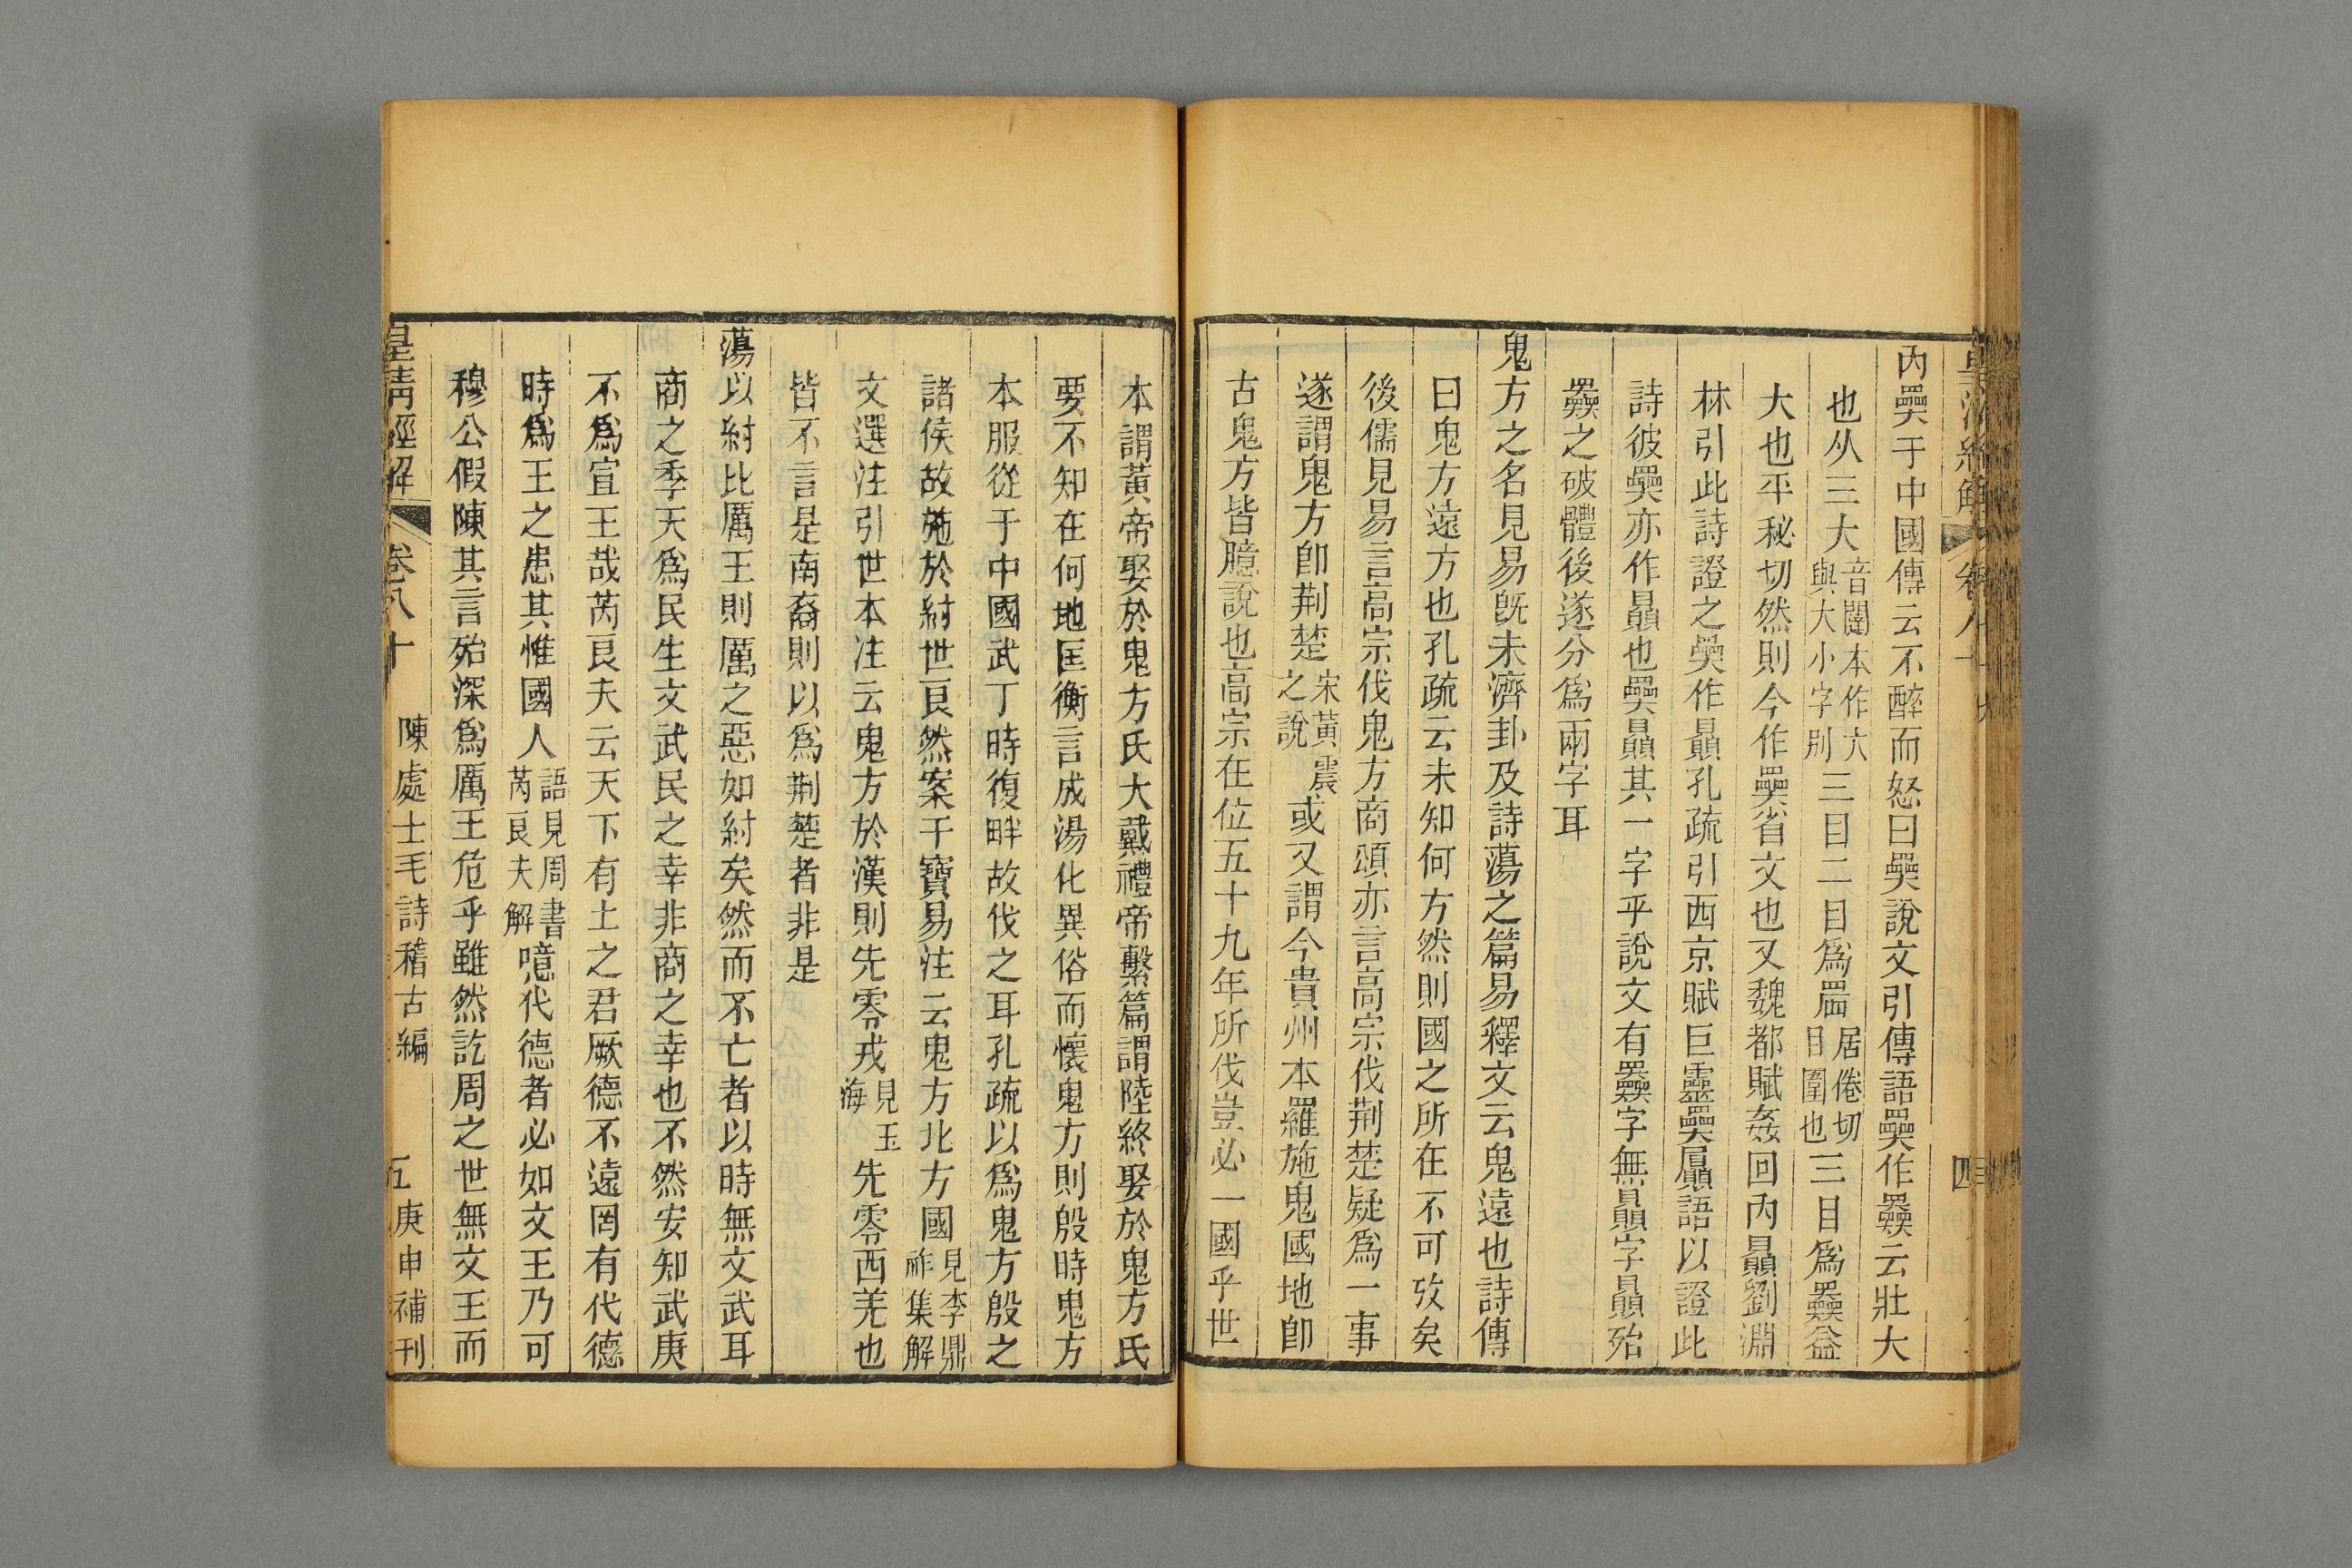 內奰于中國傳云不醉而怒曰奰說文引傳語奰作𡚤云壯大
也从三大音闥本作亣與大小字別三目二目爲𥃩居倦切目圍也三目爲𡚤益
大也平秘切然則今作奰省文也又魏都賦姦回內贔劉淵
林引此詩證之奰作贔孔疏引西京賦巨靈奰屭語以證此
詩彼奰亦作贔也奰贔其一字乎說文有𡚤字無贔字贔殆
𡚤之破體後遂分爲兩字耳
鬼方之名見易旣未濟卦及詩蕩之篇易釋文云鬼遠也詩傳
曰鬼方遠方也孔疏云未知何方然則國之所在不可攷矣
後儒見易言高宗伐鬼方商頌亦言高宗伐荆楚疑爲一事
遂謂鬼方卽荆楚宋黃震之說或又謂今貴州本羅施鬼國地卽
古鬼方皆臆說也高宗在位五十九年所伐豈必一國乎世
本謂黃帝娶於鬼方氏大戴禮帝繫篇謂陸終娶於鬼方氏
要不知在何地匡衡言成湯化異俗而懷鬼方則殷時鬼方
本服從于中國武丁時復畔故伐之耳孔疏以爲鬼方殷之
諸侯故施於紂世良然案干寶易注云鬼方北方國見李鼎祚集解
文選注引世本注云鬼方於漢則先零戎見玉海先零西羌也
皆不言是南裔則以爲荆楚者非是
蕩以紂比厲王則厲之惡如紂矣然而不亡者以時無文武耳
商之季天爲民生文武民之幸非商之幸也不然安知武庚
不爲宣王哉芮良夫云天下有土之君厥德不遠罔有代德
時爲王之患其惟國人語見周書芮良夫解噫代德者必如文王乃可
穆公假陳其言殆深爲厲王危乎雖然訖周之世無文王而
皇清經解 卷八十 陳處士毛詩稽古編 五 庚申補刊